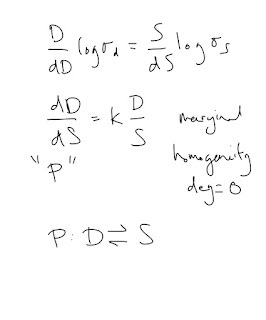 D/dD log σd = S/dS log σs
dD/dS = k D/S
marginal
"P"
homogeneity
deg=0
P: D ⇌ S